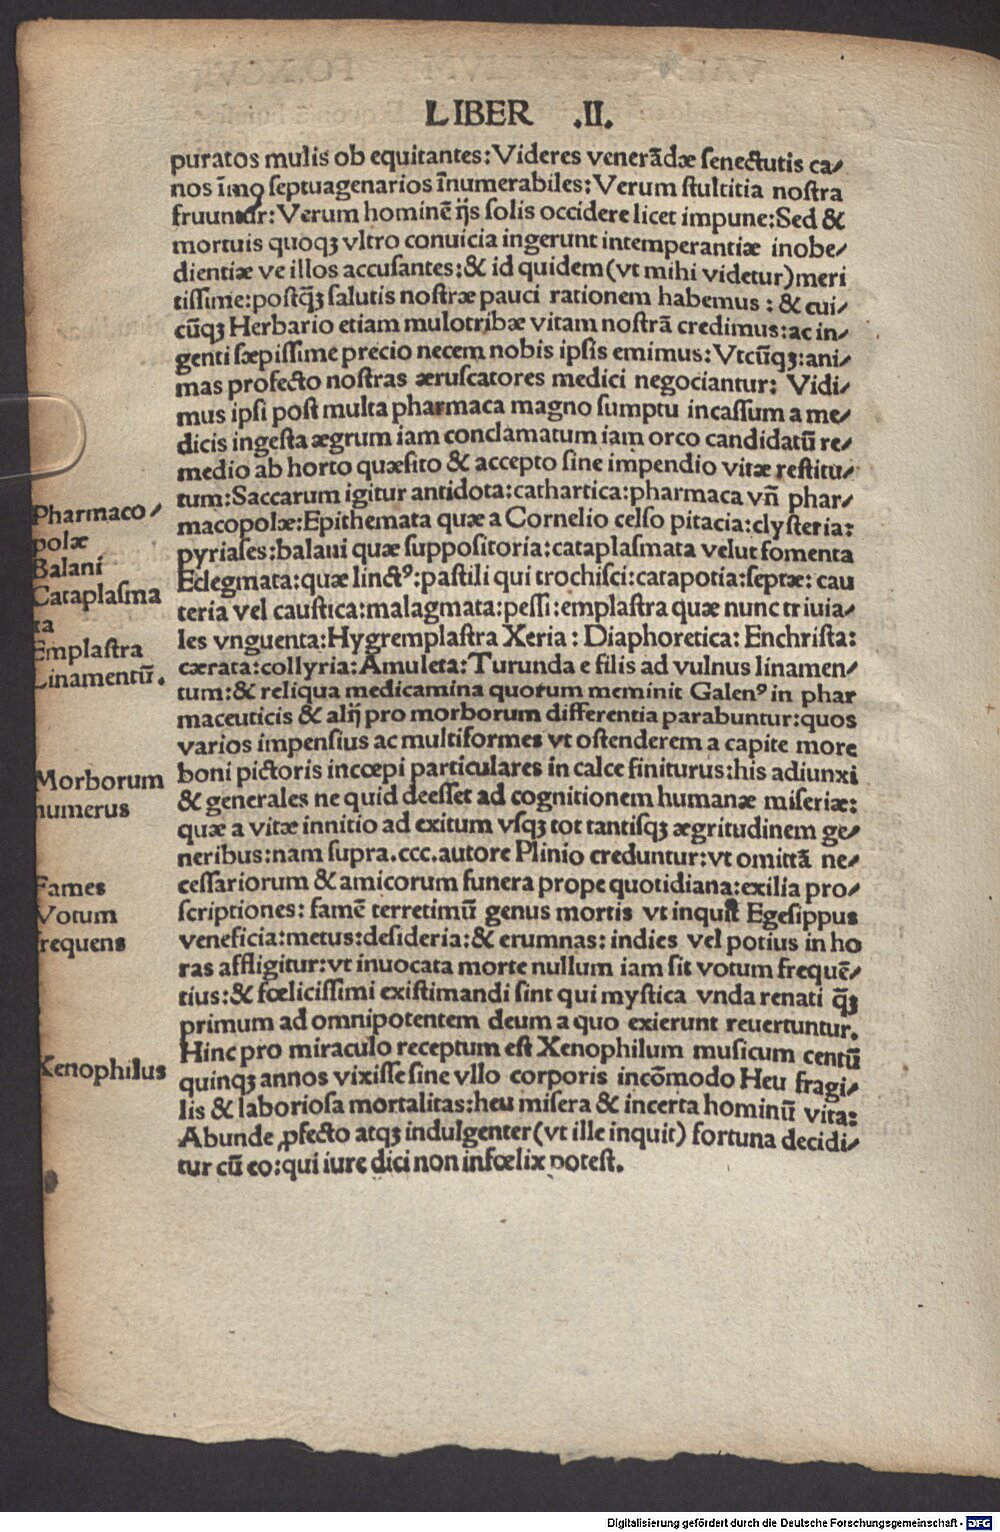 LIBER .II.
puratos mulis ob equitantes: Videres venerādæ senectutis ca⸗
nos īmo septuagenarios īnumerabiles: Verum stultitia nostra
fruuntur: Verum hominē ijs solis occidere licet impune: Sed &
mortuis quoqꝫ vltro conuicia ingerunt intemperantiæ inobe⸗
dientiæ ve illos accusantes: & id quidem (vt mihi videtur) meri
tissime: postq̄ꝫ salutis nostræ pauci rationem habemus: & cui⸗
cūqꝫ Herbario etiam mulotribæ vitam nostrā credimus: ac in⸗
genti sæpissime precio necem nobis ipsis emimus: Vtcūqꝫ: ani⸗
mas profecto nostras æruscatores medici negociantur: Vidi⸗
mus ipsi post multa pharmaca magno sumptu incassum a me⸗
dicis ingesta ægrum iam conclamatum iam orco candidatū re⸗
medio ab horto quæsito & accepto sine impendio vitæ restitu⸗
tum: Saccarum igitur antidota: cathartica: pharmaca vn̄ phar⸗
macopolæ: Epithemata quæ a Cornelio celso pitacia: clysteria:
pyriases: balani quæ suppositoria: cataplasmata velut fomenta
Eclegmata: quæ linctꝰ: pastili qui trochisci: catapotia: septæ: cau
teria vel caustica: malagmata: pessi: emplastra quæ nunc triuia⸗
les vnguenta: Hygremplastra Xeria: Diaphoretica: Enchrista:
cærata: collyria: Amuleta: Turunda e filis ad vulnus linamen⸗
tum: & reliqua medicamina quorum meminit Galenꝰ in phar
maceuticis & alij pro morborum differentia parabuntur: quos
varios impensius ac multiformes vt ostenderem a capite more
boni pictoris incœpi particulares in calce finiturus: his adiunxi
& generales ne quid deesset ad cognitionem humanæ miseriæ:
quæ a vitæ innitio ad exitum vsqꝫ tot tantisqꝫ ægritudinem ge⸗
neribus: nam supra .ccc. autore Plinio creduntur: vt omittā ne⸗
cessariorum & amicorum funera prope quotidiana: exilia pro⸗
scriptiones: famē terretimū genus mortis vt inquit Egesippus
veneficia: metus: desideria: & erumnas: indies vel potius in ho
ras affligitur: vt inuocata morte nullum iam sit votum frequē⸗
tius: & fœlicissimi existimandi sint qui mystica vnda renati q̄ꝫ
primum ad omnipotentem deum a quo exierunt reuertuntur.
Hinc pro miraculo receptum est Xenophilum musicum centū
quinqꝫ annos vixisse sine vllo corporis incōmodo Heu fragi⸗
lis & laboriosa mortalitas: heu misera & incerta hominū vita:
Abunde ꝓfecto atqꝫ indulgenter (vt ille inquit) fortuna decidi⸗
tur cū eo: qui iure dici non infœlix potest.
Pharmaco⸗
polæ
Balani
Cataplasma
ta
Emplastra
Linamentū.
Morborum
numerus
Fames
Votum
frequens
Xenophilus
Digitalisierung gefördert durch die Deutsche Forschungsgemeinschaft - DFG